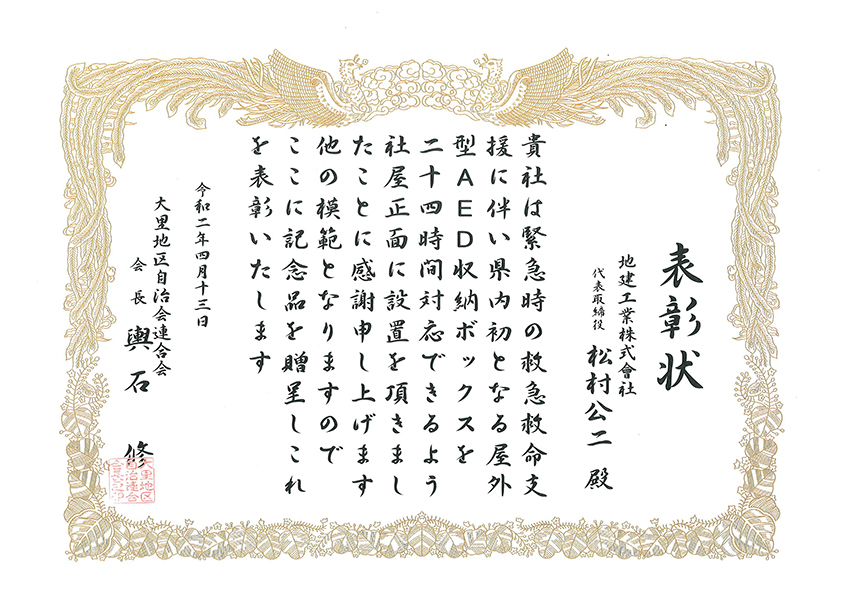 表彰状
地建工業株式會社
代表取締役 松村公二 殿
貴社は緊急時の救急救命支
援に伴い県内初となる屋外
型AED収納ボックスを
二十四時間対応できるよう
社屋正面に設置を頂きまし
たことに感謝申し上げます
他の模範となりますので
ここに記念品を贈呈しこれ
を表彰いたします
令和二年四月十三日
大里地区自治会連合会
会長 輿石 修